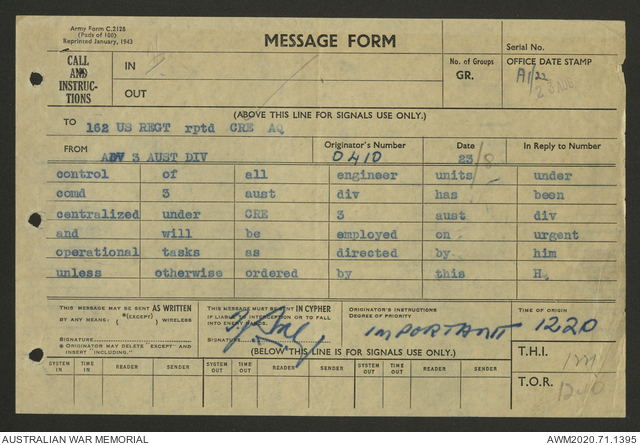 Army Form C.2128
(Pads of 100)
Reprinted January, 1943
MESSAGE FORM
Serial No.
CALL AND INSTRUC-TIONS
IN
OUT
No. of Groups
GR.
OFFICE DATE STAMP
A1/22
23 AUG
(ABOVE THIS LINE FOR SIGNALS USE ONLY.)
TO 162 US REGT rptd CRE AQ
FROM ADV 3 AUST DIV
Originator's Number 0410
Date 23/8
In Reply to Number
control of all engineer units under
comd 3 aust div has been
centralized under CRE 3 aust div
and will be employed on urgent
operational tasks as directed by him
unless otherwise ordered by this HQ
THIS MESSAGE MAY BE SENT AS WRITTEN
BY ANY MEANS: *(EXCEPT) WIRELESS
SIGNATURE
* ORIGINATOR MAY DELETE "EXCEPT" AND INSERT "INCLUDING."
THIS MESSAGE MUST BE SENT IN CYPHER
IF LIABLE TO INTERCEPTION OR TO FALL INTO ENEMY HANDS.
SIGNATURE
ORIGINATOR'S INSTRUCTIONS
DEGREE OF PRIORITY
IMPORTANT
TIME OF ORIGIN
1220
(BELOW THIS LINE IS FOR SIGNALS USE ONLY.)
T.H.I.
T.O.R. 1240
SYSTEM IN TIME IN READER SENDER SYSTEM OUT TIME OUT READER SENDER SYSTEM OUT TIME OUT READER SENDER
AUSTRALIAN WAR MEMORIAL
AWM2020.71.1395